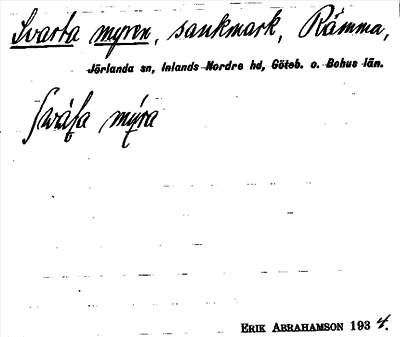 Svarta myren, sankmark, Råmma,
Jörlanda sn, Inlands Nordre hd, Göteb. o. Bohus län.
mýra
ERIK ABRAHAMSON 1934.